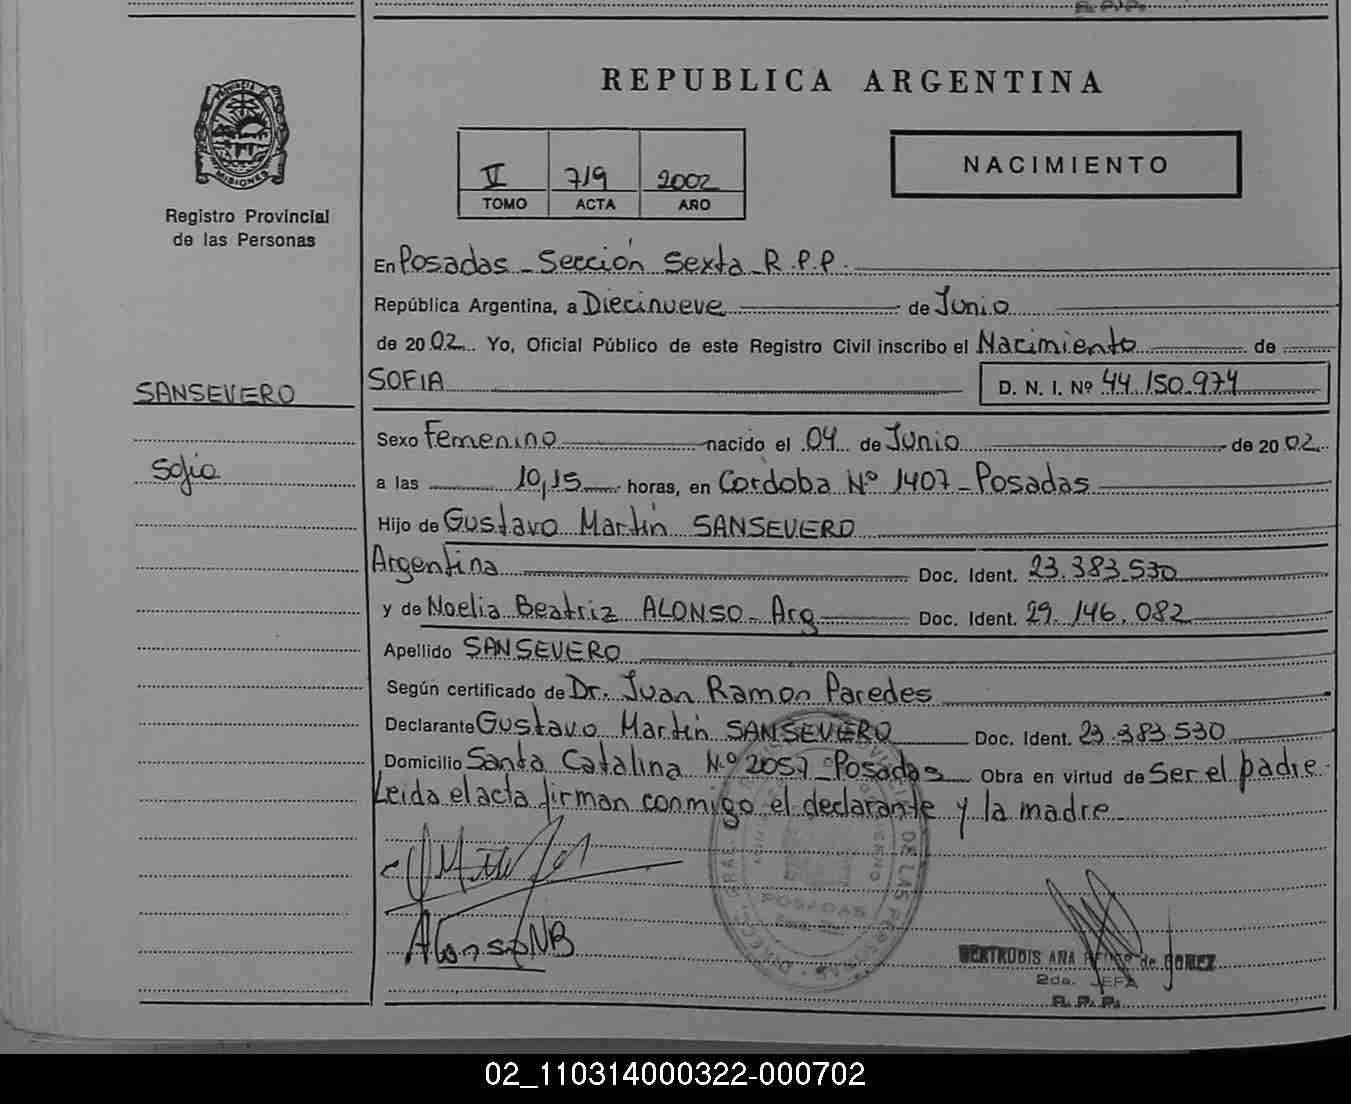 R. P. P.
REPUBLICA ARGENTINA
PROVINCIA
MISIONES
Registro Provincial
de las Personas
V 719 2002
TOMO ACTA AÑO
NACIMIENTO
En Posadas - Sección Sexta R.P.P.
República Argentina, a Diecinueve de Junio
de 2002 Yo, Oficial Público de este Registro Civil inscribo el Nacimiento de
SOFIA D. N. I. Nº 44.150.974
SANSEVERO
Sexo Femenino nacido el 04 de Junio de 2002
Sofia
a las 10,15 horas, en Cordoba Nº 1407 - Posadas
Hijo de Gustavo Martín SANSEVERO
Argentina Doc. Ident. 23.383.530
y de Noelia Beatriz ALONSO - Arg Doc. Ident. 29.146.082
Apellido SANSEVERO
Según certificado de Dr. Juan Ramon Paredes
Declarante Gustavo Martín SANSEVERO Doc. Ident. 23.383.530
Domicilio Santa Catalina Nº 2057 - Posadas Obra en virtud de Ser el padre.
Leida el acta firman conmigo el declarante y la madre.
POSADAS
Alonso NB
GERTRUDIS ANA de GOMEZ
2da. JEFA
R. P. P.
02_110314000322-000702